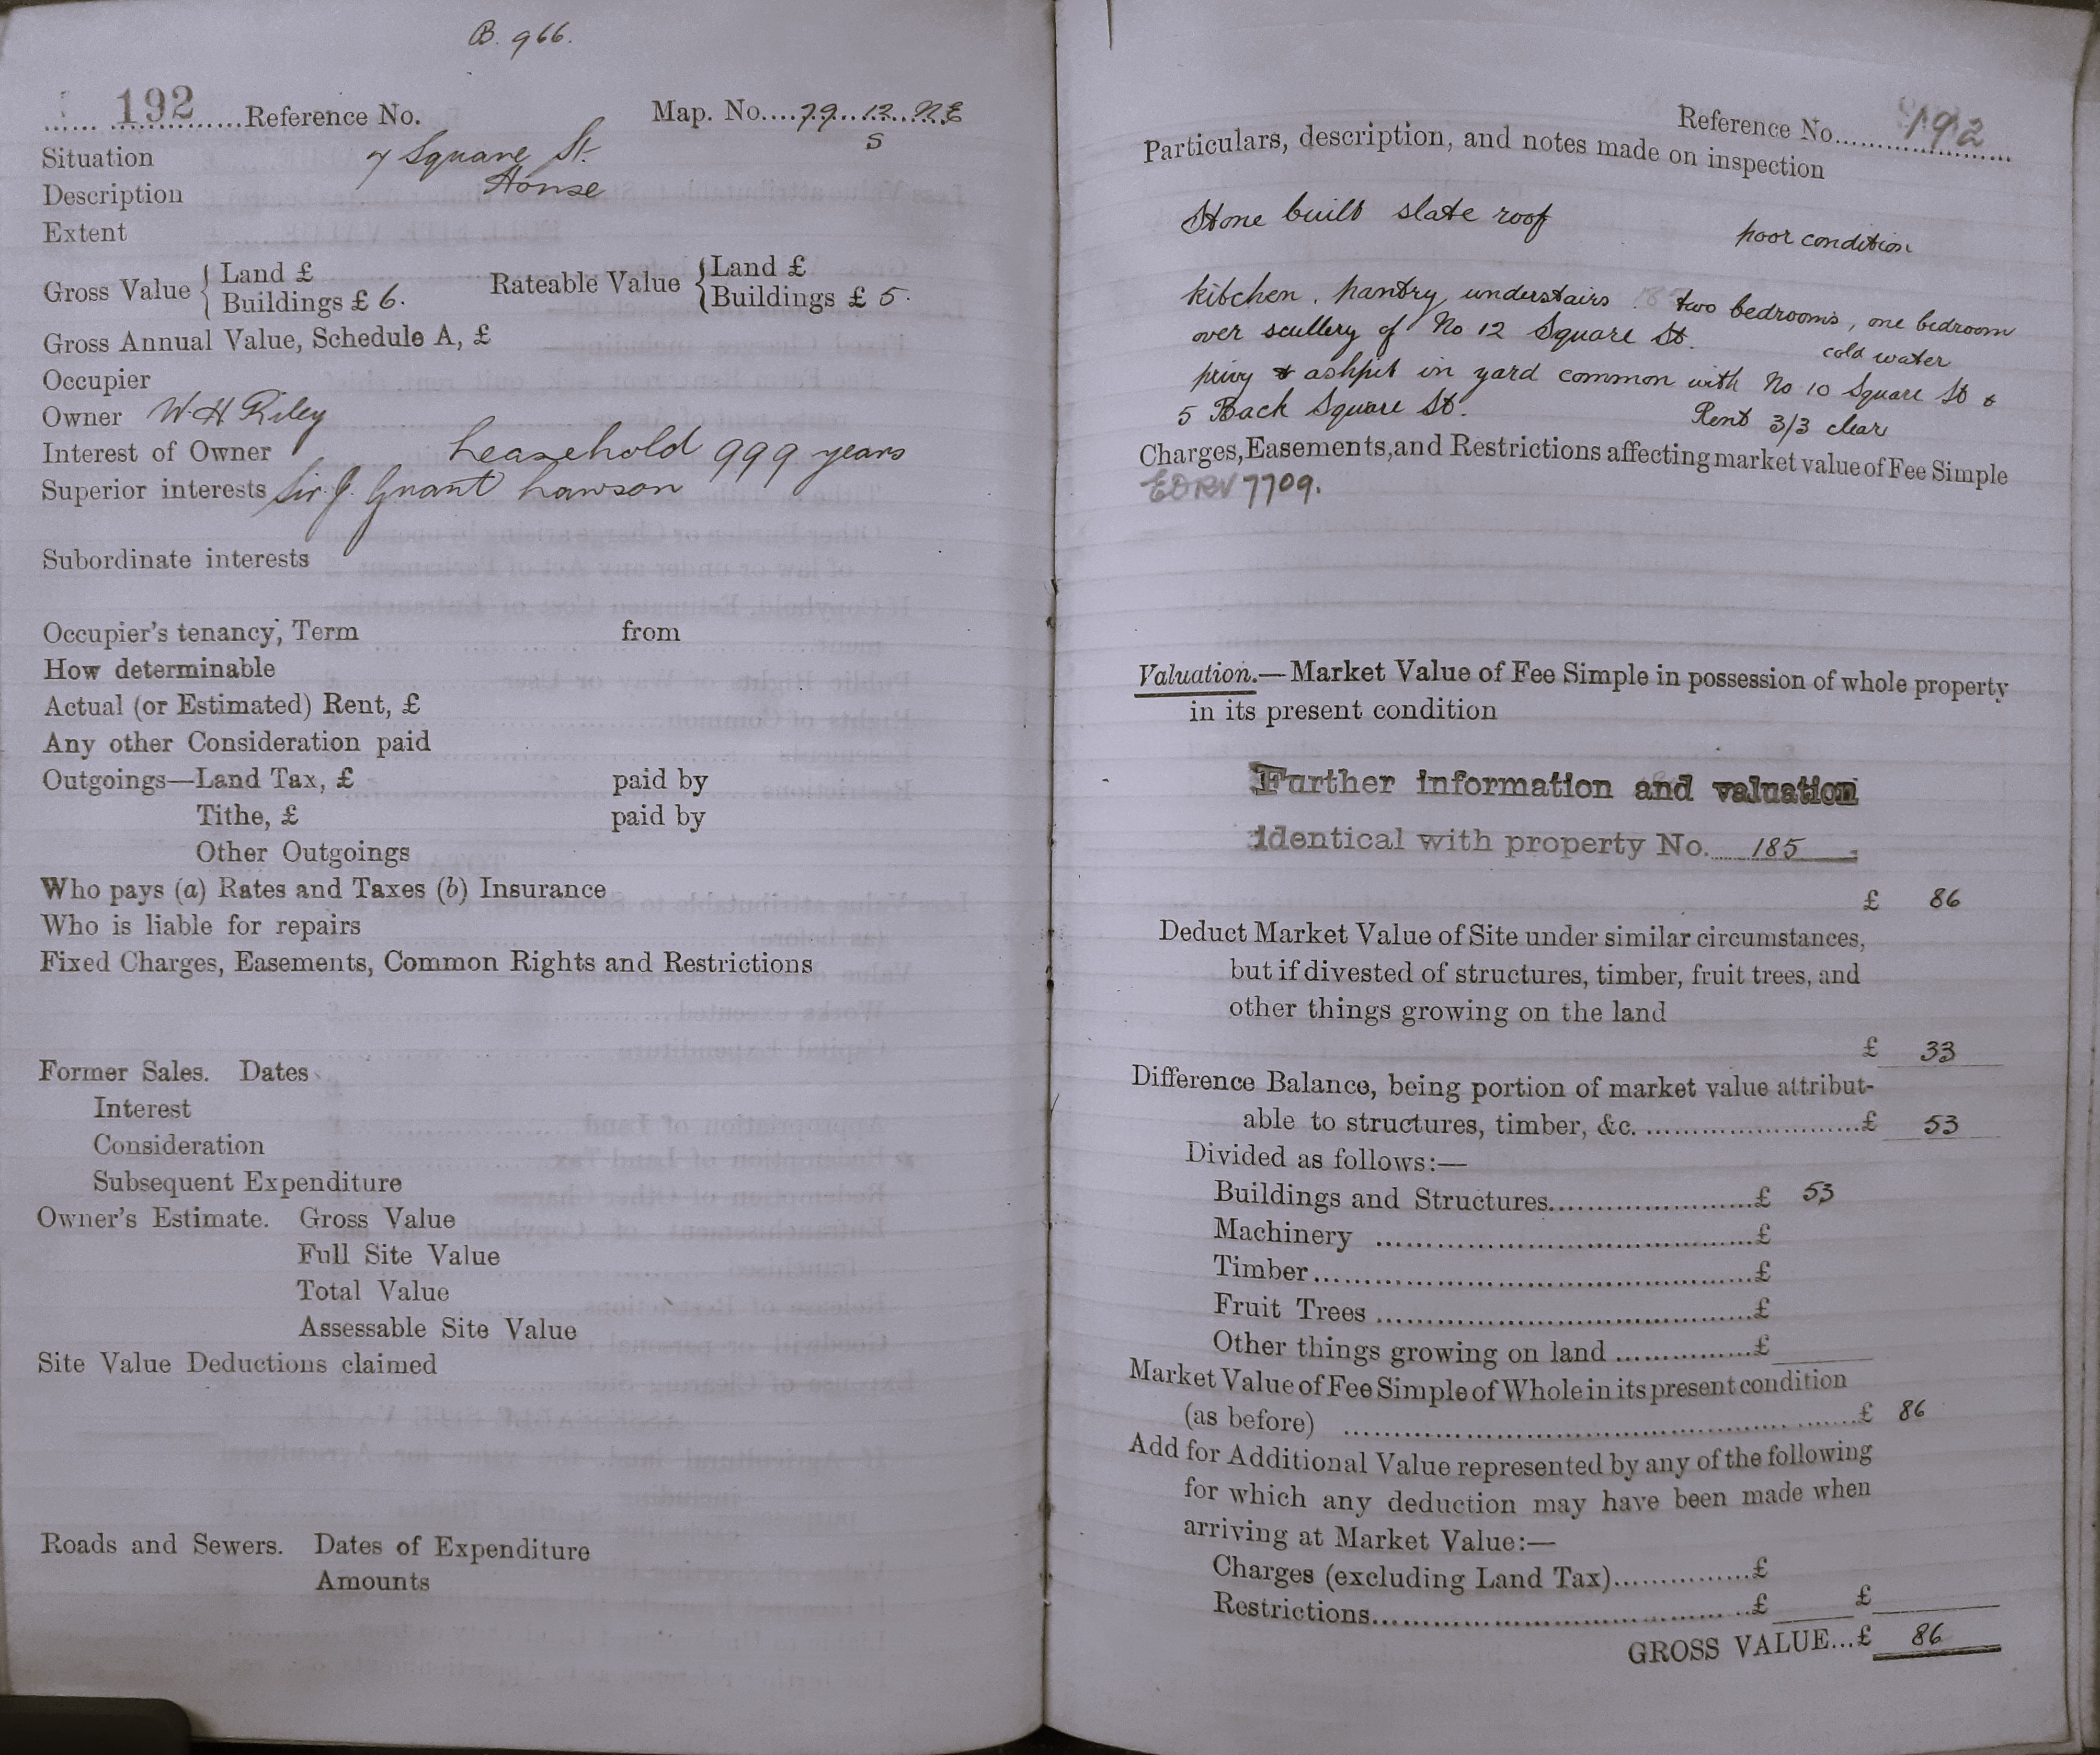 B. 966.
192 Reference No.
Map. No. 79. 12. N.E
S
Situation 7 Square St.
Description House
Extent
Gross Value { Land £
Buildings £ 6.
Rateable Value { Land £
Buildings £ 5.
Gross Annual Value, Schedule A, £
Occupier
Owner W. H Riley
Interest of Owner Leasehold 999 years
Superior interests Sir J. Grant Lawson
Subordinate interests
Occupier's tenancy, Term from
How determinable
Actual (or Estimated) Rent, £
Any other Consideration paid
Outgoings—Land Tax, £ paid by
Tithe, £ paid by
Other Outgoings
Who pays (a) Rates and Taxes (b) Insurance
Who is liable for repairs
Fixed Charges, Easements, Common Rights and Restrictions
Former Sales. Dates
Interest
Consideration
Subsequent Expenditure
Owner's Estimate. Gross Value
Full Site Value
Total Value
Assessable Site Value
Site Value Deductions claimed
Roads and Sewers. Dates of Expenditure
Amounts
Reference No. 192
Particulars, description, and notes made on inspection
Stone built slate roof poor condition
kitchen, pantry, understairs two bedrooms, one bedroom
over scullery of No 12 Square St. cold water
privy & ashpit in yard common with No 10 Square St &
5 Back Square St. Rent 3/3 clear
Charges, Easements, and Restrictions affecting market value of Fee Simple
7709.
Valuation.—Market Value of Fee Simple in possession of whole property
in its present condition
Further information and valuation
identical with property No. 185
£ 86
Deduct Market Value of Site under similar circumstances,
but if divested of structures, timber, fruit trees, and
other things growing on the land
£ 33
Difference Balance, being portion of market value attribut-
able to structures, timber, &c. £ 53
Divided as follows:—
Buildings and Structures £ 53
Machinery £
Timber £
Fruit Trees £
Other things growing on land £
Market Value of Fee Simple of Whole in its present condition
(as before) £ 86
Add for Additional Value represented by any of the following
for which any deduction may have been made when
arriving at Market Value:—
Charges (excluding Land Tax) £
Restrictions £ £
GROSS VALUE...£ 86